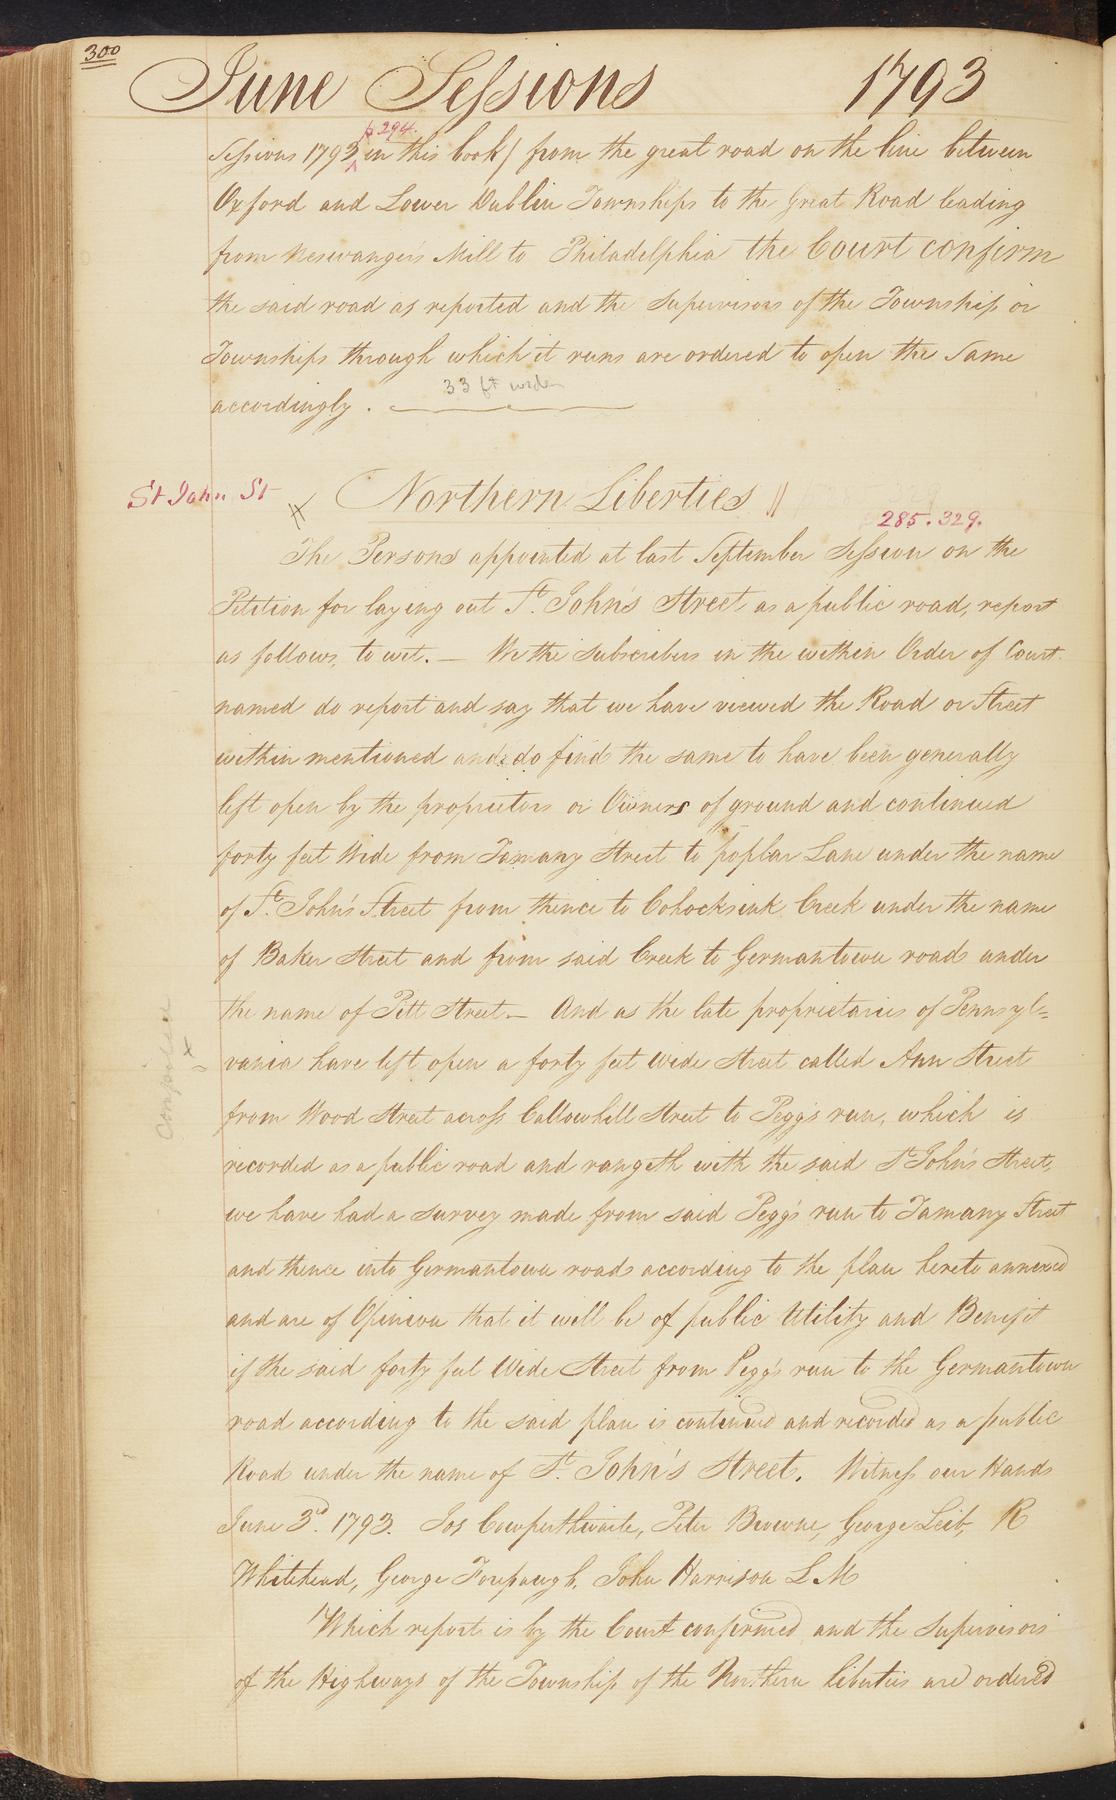 300
June Sessions 1793
p 294.
Sessions 1793 in this book) from the great road on the line between
Oxford and Lower Dublin Townships to the Great Road leading
from Neswanger's Mill to Philadelphia the Court confirm
the said road as reported and the Supervisors of the Township or
Townships through which it runs are ordered to open the same
accordingly.
33 ft wide
St John St
Northern Liberties
285. 329.
The Persons appointed at last September Session on the
Petition for laying out St. John's Street as a public road, report
as follows, to wit. — We the subscribers in the within Order of Court
named do report and say that we have viewed the Road or Street
within mentioned and do find the same to have been generally
left open by the proprietors or Owners of ground and continued
forty feet Wide from Tamany Street to poplar Lane under the name
of St. John's Street from thence to Cohocksink Creek under the name
of Baker Street and from said Creek to Germantown road under
the name of Pitt Street — And as the late proprietaries of Pennsyl=
vania have left open a forty feet wide Street called Ann Street
from Wood Street across Callowhill Street to Pegg's run, which is
recorded as a public road and rangeth with the said St John's Street,
we have had a survey made from said Pegg's run to Tamany Street
and thence into Germantown road according to the plan hereto annexed
and are of Opinion that it will be of public Utility and Benefit
if the said forty feet Wide Street from Pegg's run to the Germantown
road according to the said plan is continued and recorded as a public
Road under the name of St. John's Street. Witness our Hands
June 3d. 1793. Jos Cowperthwaite, Peter Browne, George Leib, R
Whitehead, George Forepaugh, John Harrison L M
Which report is by the Court confirmed and the Supervisors
of the Highways of the Township of the Northern liberties are ordered